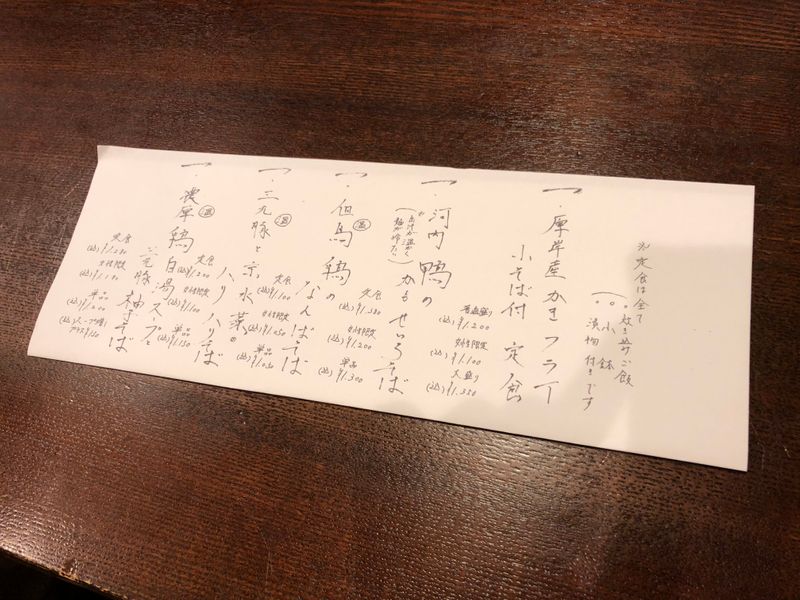 ※定食は全て
。炊き込みご飯
。小鉢
。漬物 付きです
一. 厚岸産 かきフライ
小そば付 定食
一. 河内鴨の
かもせいろそば
普通盛り
(込)¥1.200
女性限定
(込)¥1.100
大盛り
(込)¥1.350
一. 但馬鶏の 温
なんばそば
定食
(込)¥1.350
女性限定
(込)¥1.200
単品
(込)¥1.300
一. 三元豚と京水菜の 温
ハリハリそば
定食
(込)¥1.100
女性限定
(込)¥1.050
単品
(込)¥1.050
一. 濃厚 鶏白湯スープ 温
三元豚 柚子そば
定食
(込)¥1.200
女性限定
(込)¥1.100
単品
(込)¥1.200